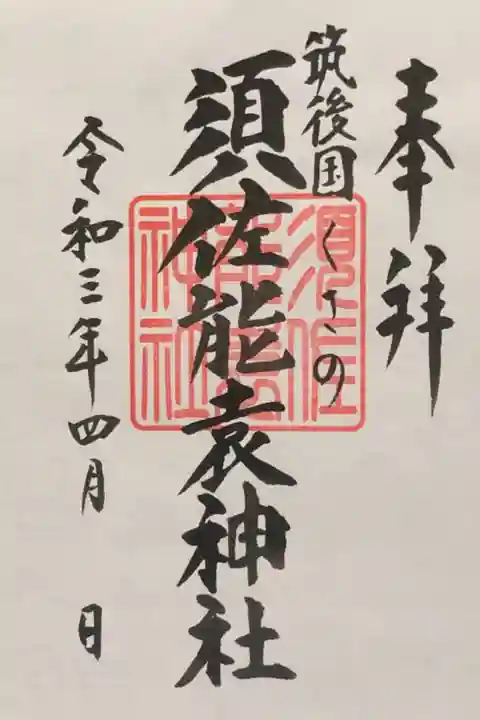 奉拝
筑後国くさの
須佐能袁神社
須佐
能袁
神社
令和三年四月 日